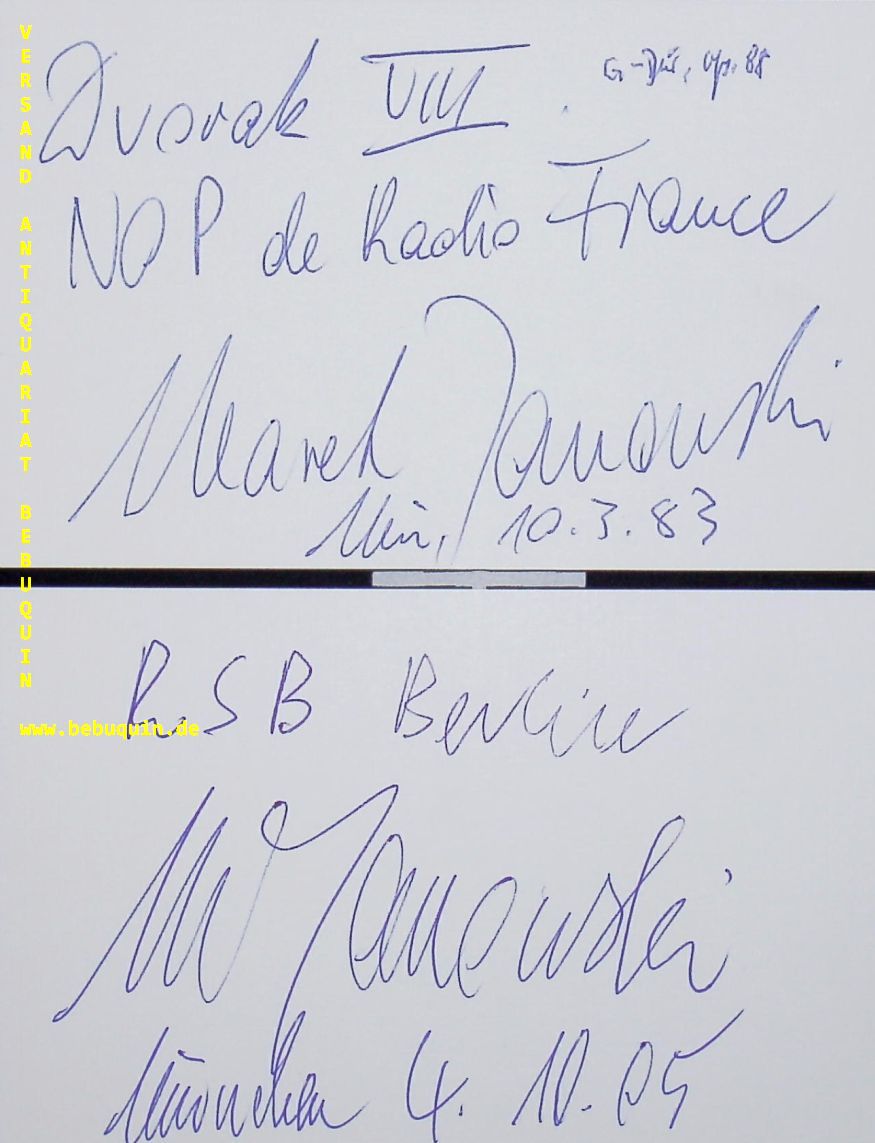 Dvorak VIII. G-Dur, op. 88
NOP de Radio France
Marek Janowski
Mün, 10.3.83
RSB Berlin
M Janowski
München 4. 10. 05
VERSAND ANTIQUARIAT BEBUQUIN
www.bebuquin.de